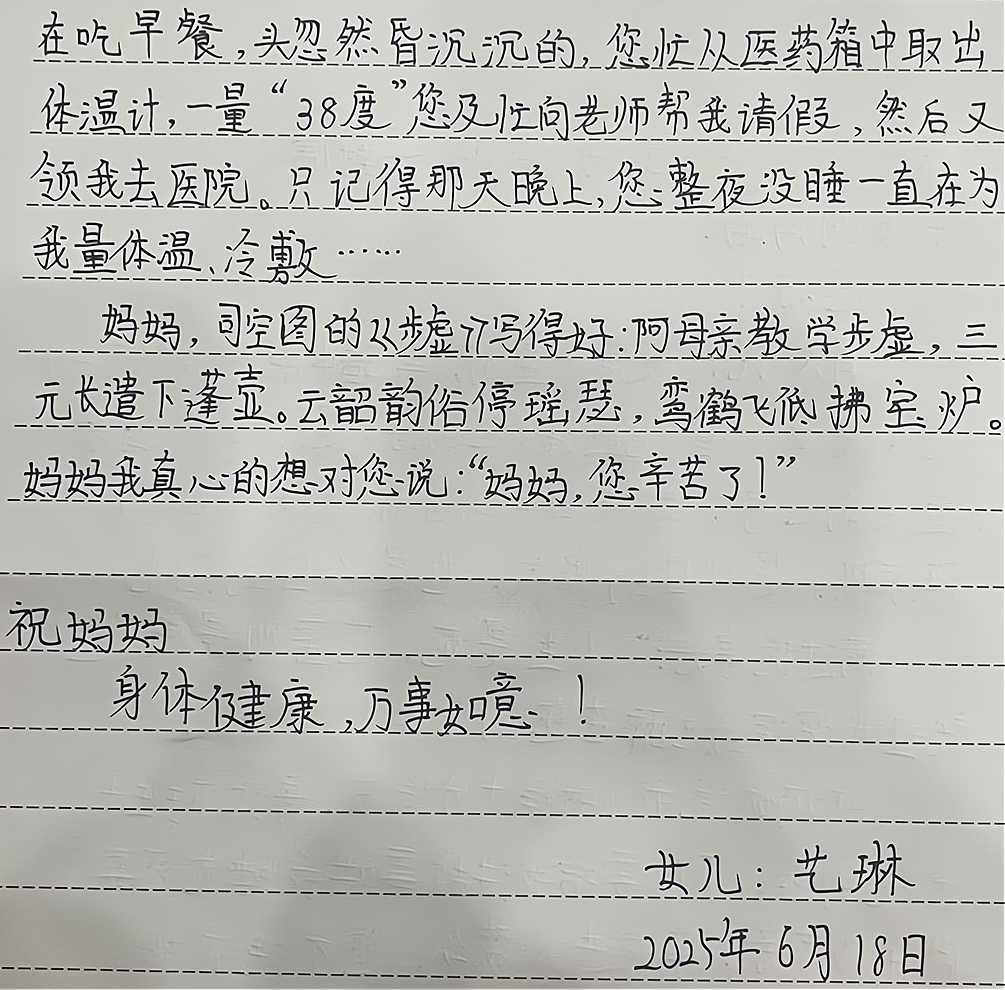 在吃早餐,头忽然昏沉沉的,您忙从医药箱中取出
体温计,一量“38度”您及忙向老师帮我请假,然后又
领我去医院。只记得那天晚上,您整夜没睡一直在为
我量体温、冷敷……
妈妈,司空图的《步虚》写得好:阿母亲教学步虚,三
元长遣下蓬壶。云韶韵俗停瑶瑟,鸾鹤飞低拂宝炉。
妈妈我真心的想对您说:“妈妈,您辛苦了!”
祝妈妈
身体健康,万事如意!
女儿:艺琳
2025年6月18日